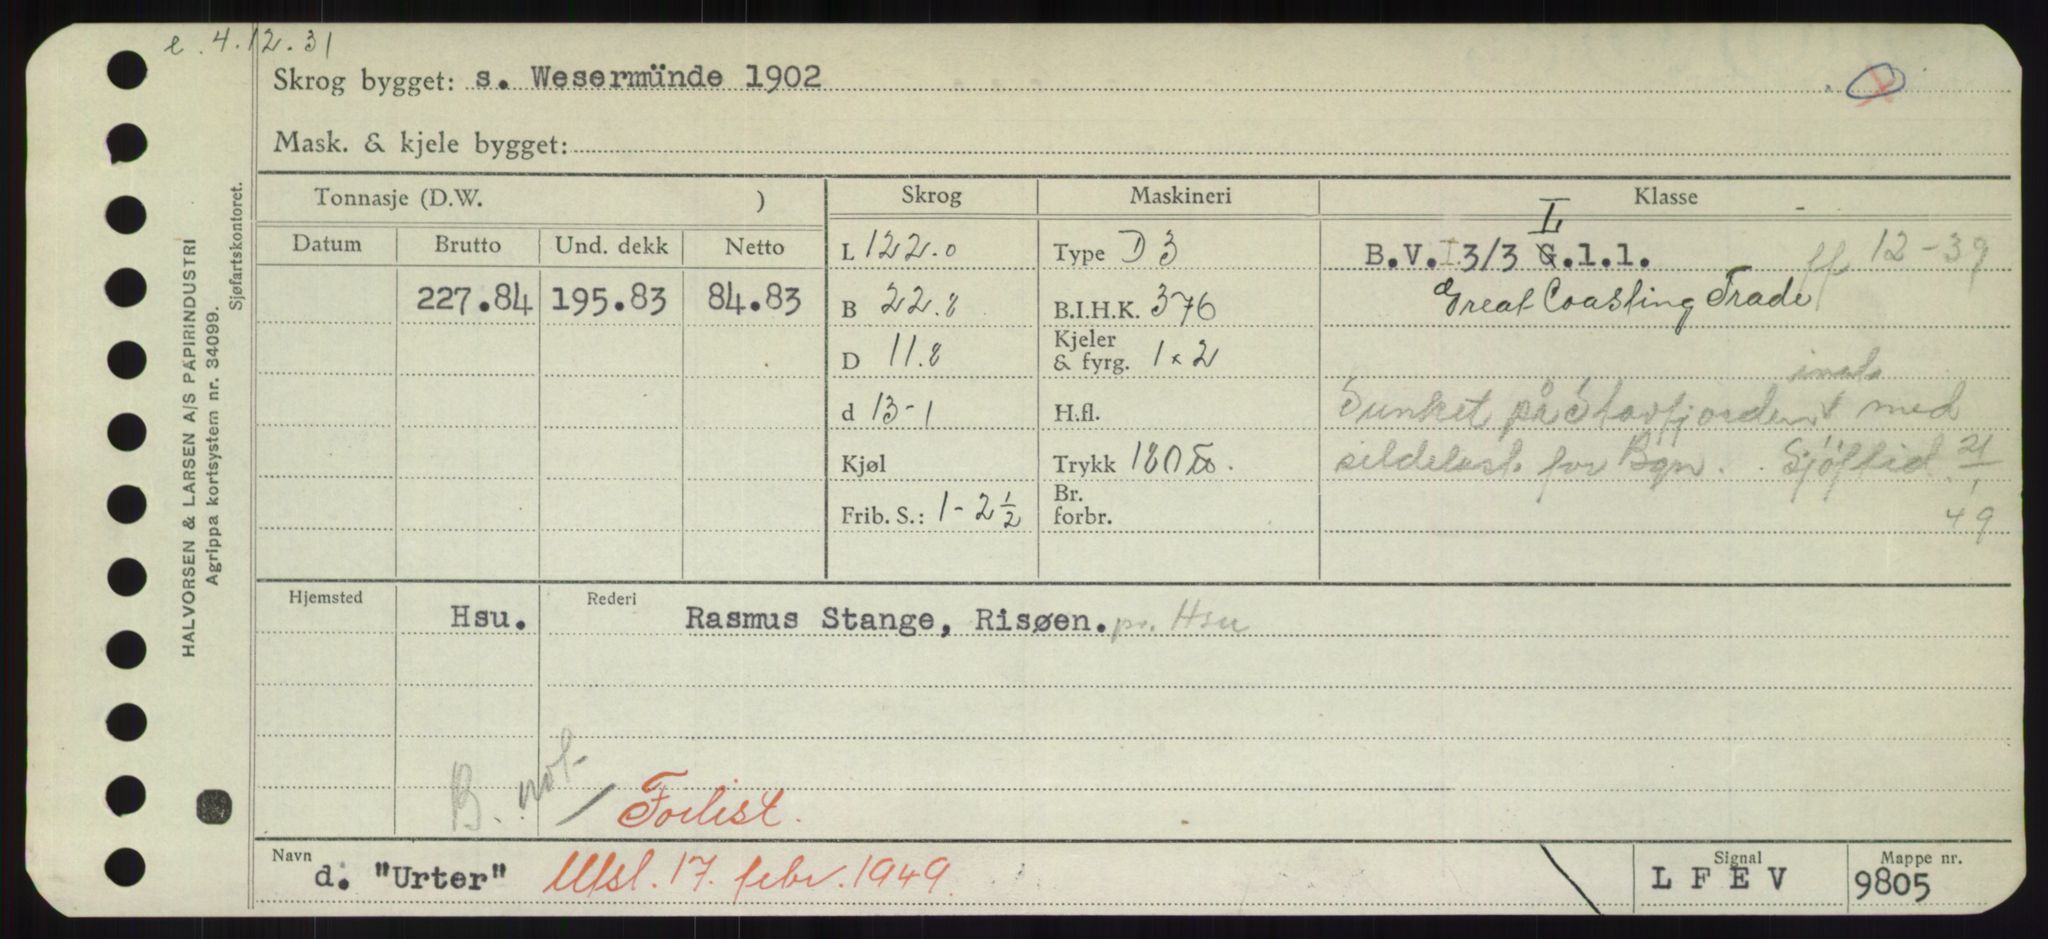 e. 4.12.31
Skrog bygget: s. Wesermünde 1902
Mask. & kjele bygget:
Tonnasje (D.W. )
Skrog
Maskineri
Klasse
Datum Brutto Und. dekk Netto
227.84 195.83 84.83
L 122.0
B 22.8
D 11.8
d 13-1
Kjøl
Frib. S.: 1 - 2 1/2
Type D 3
B.I.H.K. 376
Kjeler
& fyrg. 1 x 2
H.fl.
Trykk 180
Br.
forbr.
L
B.V. I 3/3 G.1.1. 12-39
Great Coasting Trade
Sunket på Stavfjorden med
sildelast for Bgn. Sjöftid. 21/1
49
Hjemsted Rederi
Hsu. Rasmus Stange, Risøen. pr. Hsu
B. not / Forlist.
Navn
d. "Urter" Utsl. 17. febr. 1949.
Signal
L F E V
Mappe nr.
9805
HALVORSEN & LARSEN A/S PAPIRINDUSTRI
Agrippa kortsystem nr. 34099.
Sjøfartskontoret.